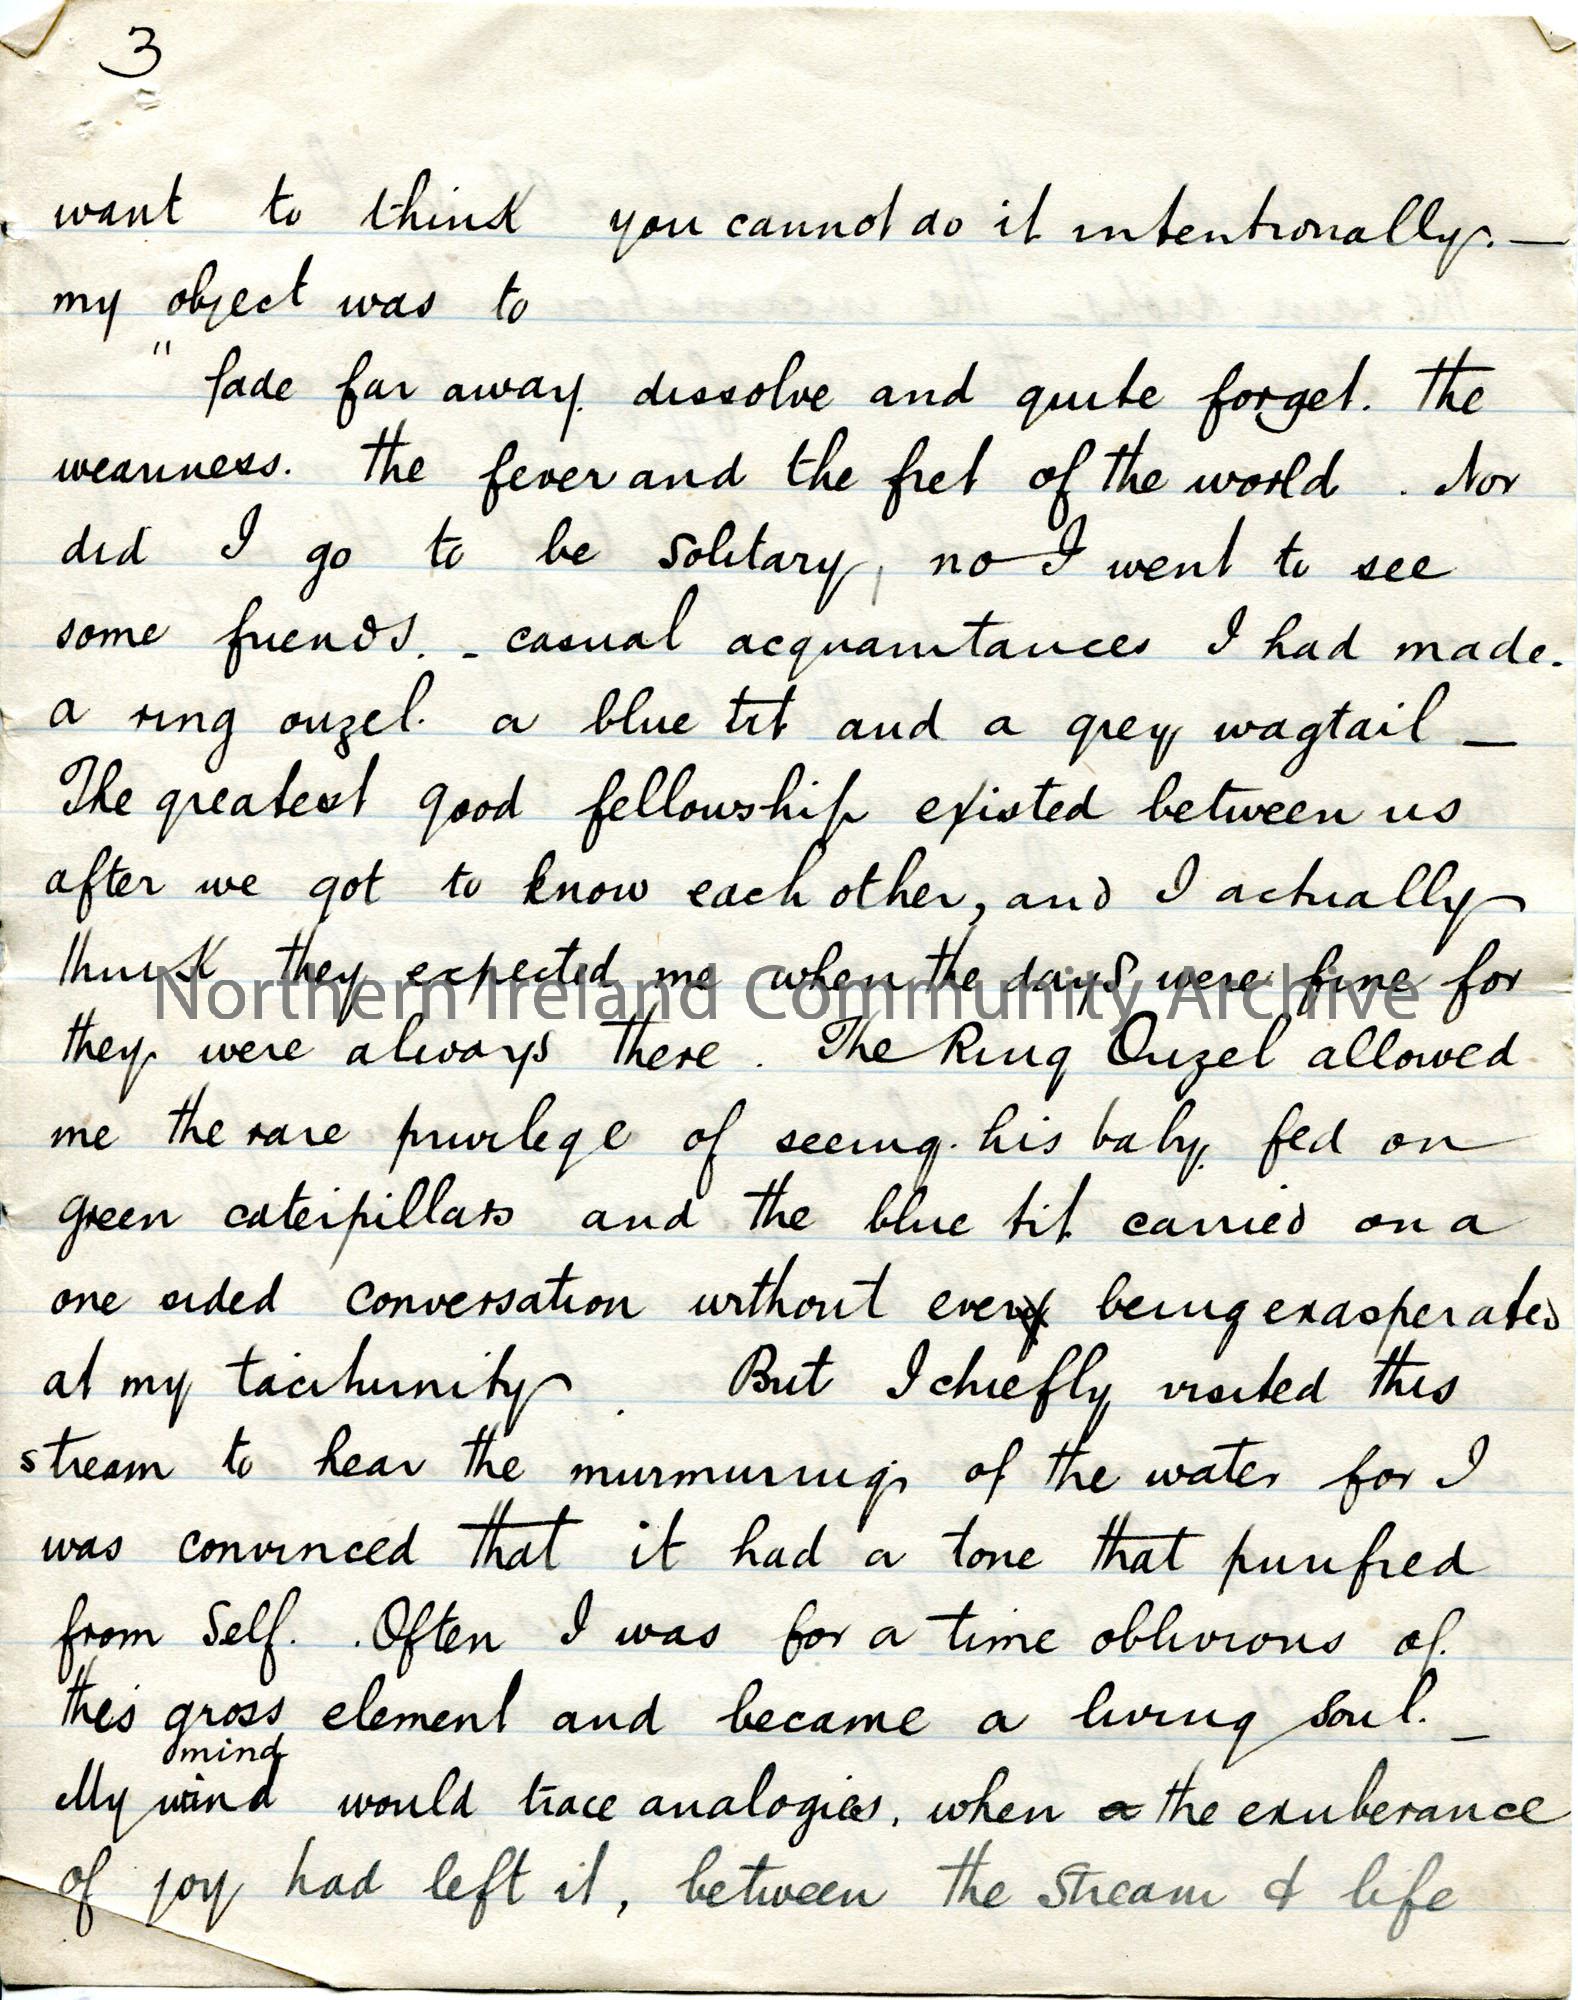 3
want to think you cannot do it intentionally. —
my object was to
" fade far away. dissolve and quite forget. the
weariness. the fever and the fret of the world . Nor
did I go to be solitary, no I went to see
some friends. - casual acquaintances I had made.
a ring ouzel. a blue tit and a grey wagtail —
The greatest good fellowship existed between us
after we got to know each other, and I actually
think they expected me when the days were fine for
Northern Ireland Community Archive
they were always there . The Ring Ouzel allowed
me the rare privilege of seeing his baby fed on
green caterpillars and the blue tit carried on a
one sided conversation without every being exasperated
at my taciturnity . But I chiefly visited this
stream to hear the murmuring of the water for I
was convinced that it had a tone that purified
from Self. . Often I was for a time oblivious of
this gross element and became a living soul. —
mind
My wind would trace analogies, when a the exuberance
of joy had left it, between the stream & life